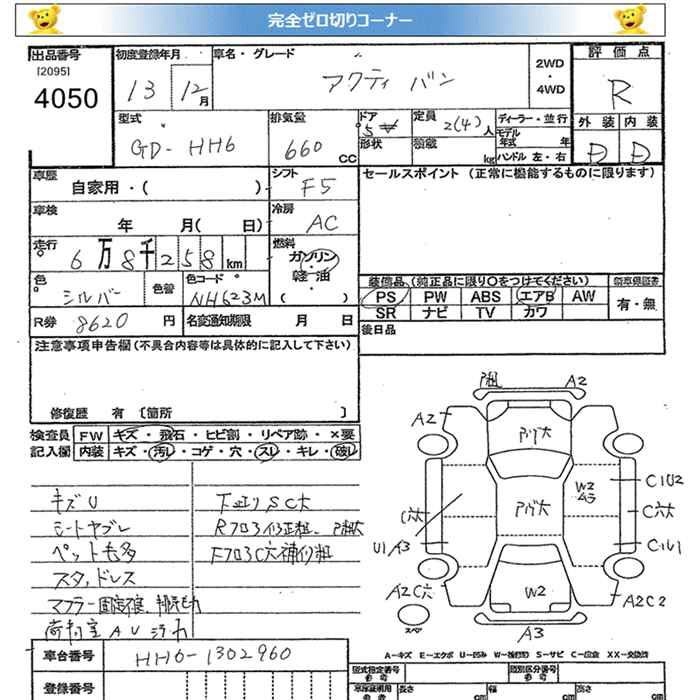 完全ゼロ切りコーナー
出品番号
[2095]
4050
初度登録年月
13 12月
車名・グレード
アクティ バン
2WD
・
4WD
評価点
R
外装 内装
D D
型式
GD-HH6
排気量
660 CC
ドア
5
形状
定員
2(4)人
積載
kg
ディーラー・並行
モデル年式 年
ハンドル 左・右
車歴
自家用・( )
シフト
F5
セールスポイント (正常に機能するものに限ります)
車検
年 月( 日)
冷房
AC
走行
6万8千258km
燃料
ガソリン・
軽油
( )
色
シルバー
色替
色コード
NH623M
装備品 (純正品に限り○をつけてください)
PS PW ABS エアB AW
SR ナビ TV カワ
有・無
R券 8620 円
名変通知期限 月 日
後日品
注意事項申告欄(不具合内容等は具体的に記入して下さい)
修復歴 有 [箇所 ]
検査員
記入欄
FW キズ・飛石・ヒビ割・リペア跡・×要
内装 キズ・汚れ・コゲ・穴・スレ・キレ・破れ
キズU
シートヤブレ
ペット毛多
スタッドレス
下廻りSC大
A2
A2
W2
ムラ
C1U2
C1U1
U1A3
A2C6
スペア
W2
A2C2
A3
A-キズ E-エクボ U-凹み W-補修跡 S-サビ C-腐食 XX-交換済
車台番号 HH6-1302960
登録番号
型式指定番号
参考
類別区分番号
参考
長さ cm
幅 cm
高さ cm